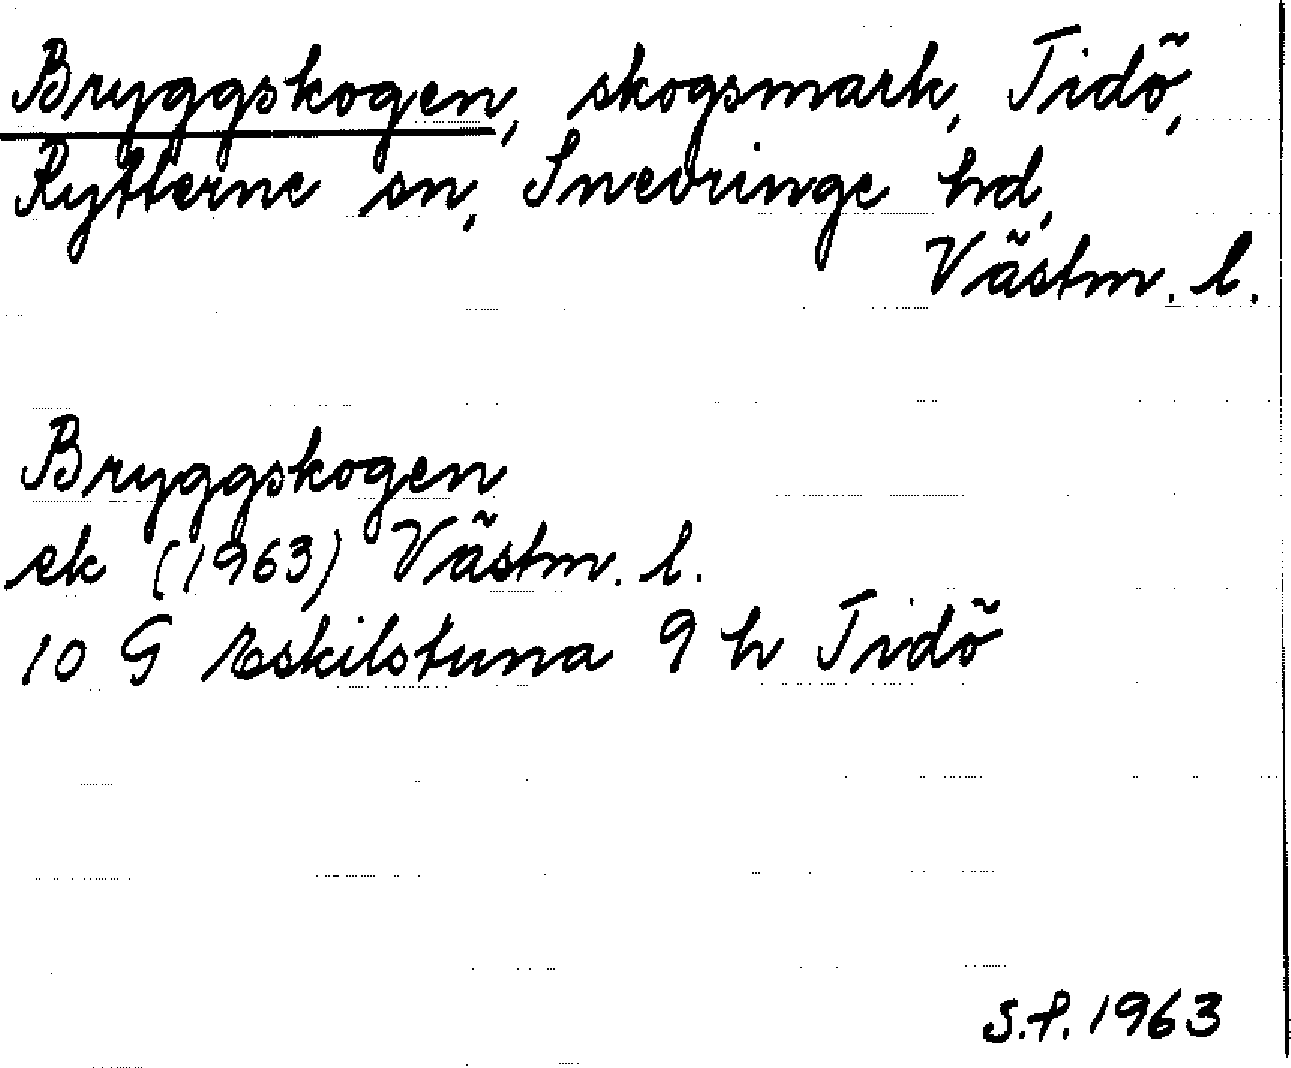 Bryggskogen, skogsmark, Tidö,
Rytterne sn, Snevringe hd,
Västm. l.
Bryggskogen
ek (1963) Västm. l.
10 G Eskilstuna 9 h Tidö
S.P. 1963